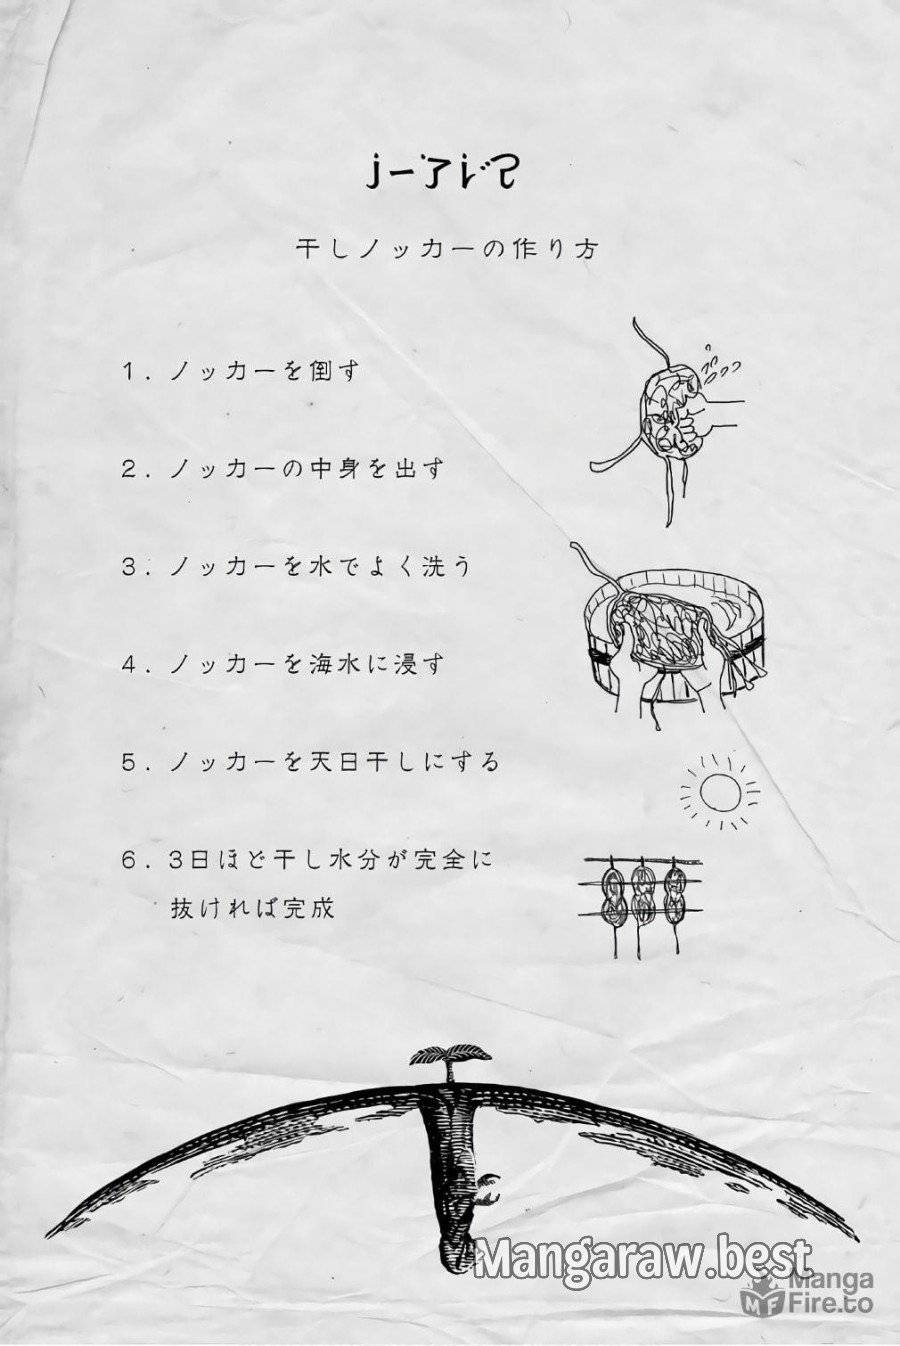 干しノッカーの作り方
1. ノッカーを倒す
2. ノッカーの中身を出す
3. ノッカーを水でよく洗う
4. ノッカーを海水に浸す
5. ノッカーを天日干しにする
6. 3日ほど干し水分が完全に
抜ければ完成
Mangaraw.best
Manga
MF Fire.to